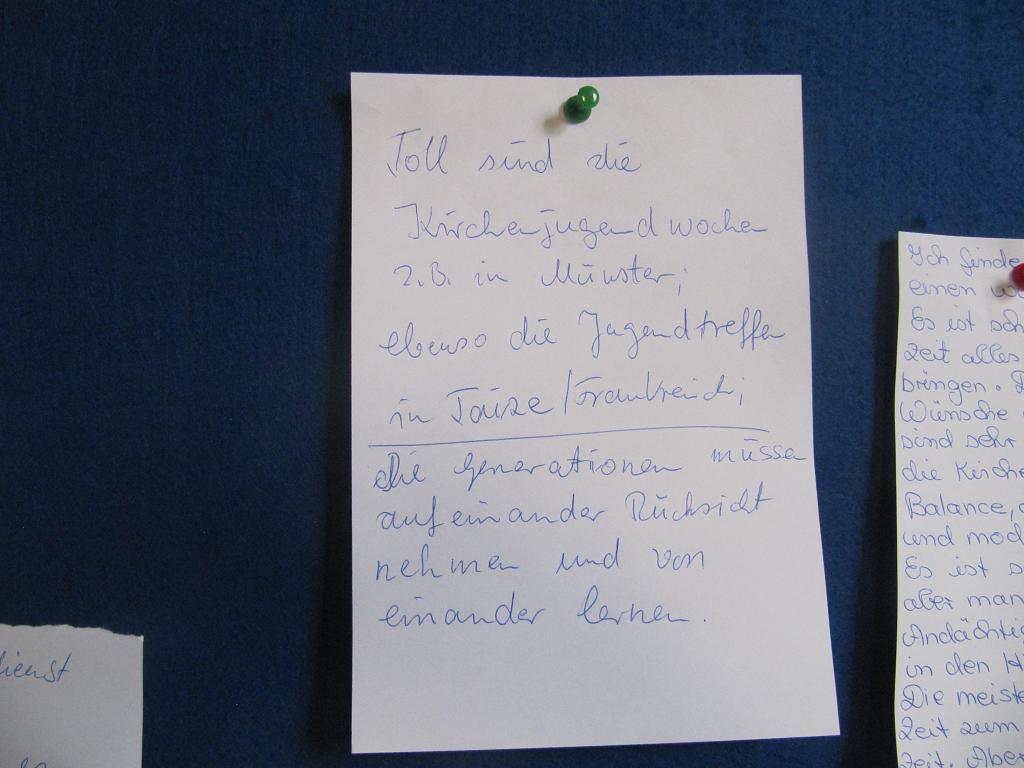 Toll sind die
Kirchenjugendwochen
z.B. in Münster;
ebenso die Jugendtreffen
in Taize/Frankreich;
die Generationen müssen
aufeinander Rücksicht
nehmen und von
einander lernen.
Ich finde
einen
Es ist sch
Zeit alles
bringen. D
Wünsche
sind sehr
die Kirche
Balance,
und mod
Es ist s
aber man
Andächti
in den Hi
Die meiste
Zeit zum
Zeit. Aber
dienst